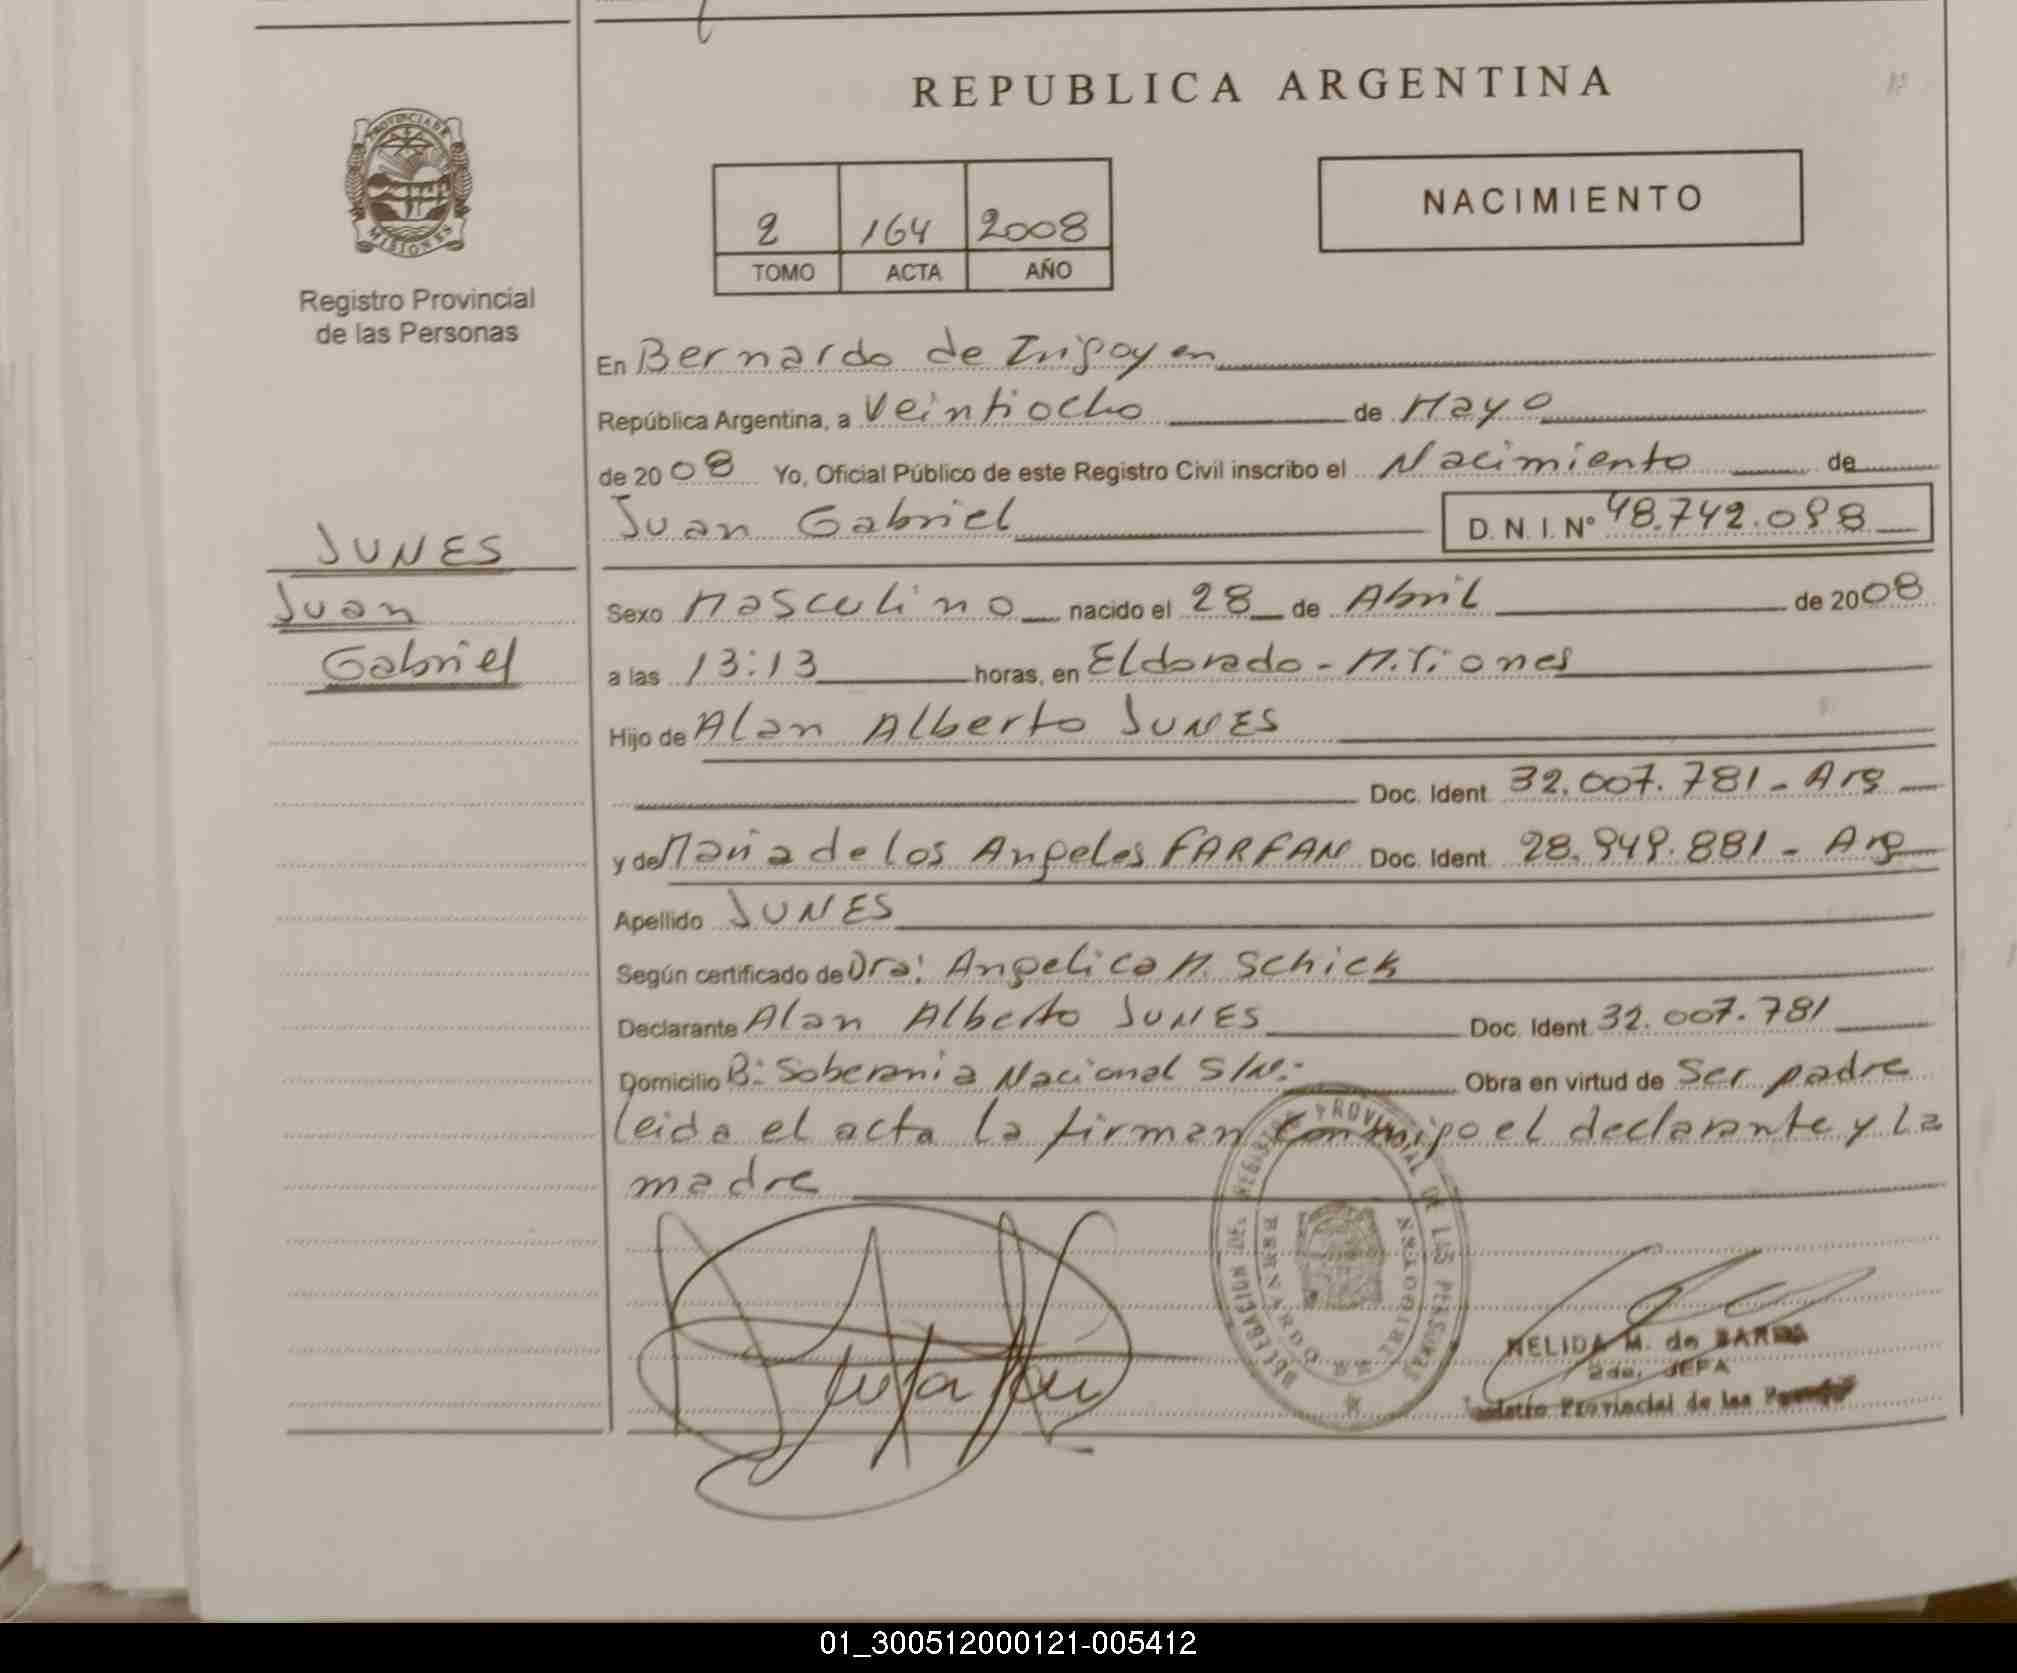 REPUBLICA ARGENTINA
PROVINCIA DE
MISIONES
Registro Provincial
de las Personas
2 164 2008
TOMO ACTA AÑO
NACIMIENTO
En Bernardo de Irigoyen
República Argentina, a Veintiocho de Mayo
de 2008 Yo, Oficial Público de este Registro Civil inscribo el Nacimiento de
Juan Gabriel D. N. I. Nº 48.742.098
JUNES
Juan
Gabriel
Sexo Masculino nacido el 28 de Abril de 2008
a las 13:13 horas, en Eldorado - Misiones
Hijo de Alan Alberto JUNES
Doc. Ident. 32.007.781 - Arg
y de Maria de los Angeles FARFAN Doc. Ident. 28.949.881 - Arg
Apellido JUNES
Según certificado de Dra: Angelica M. Schick
Declarante Alan Alberto JUNES Doc. Ident. 32.007.781
Domicilio B: Soberania Nacional S/N.- Obra en virtud de Ser padre
leida el acta la firman conmigo el declarante y la
madre
DELEGACION DEL REGISTRO PROVINCIAL DE LAS PERSONAS
BERNARDO DE IRIGOYEN
NELIDA M. de
2da. JEFA
Provincial de las
01_300512000121-005412